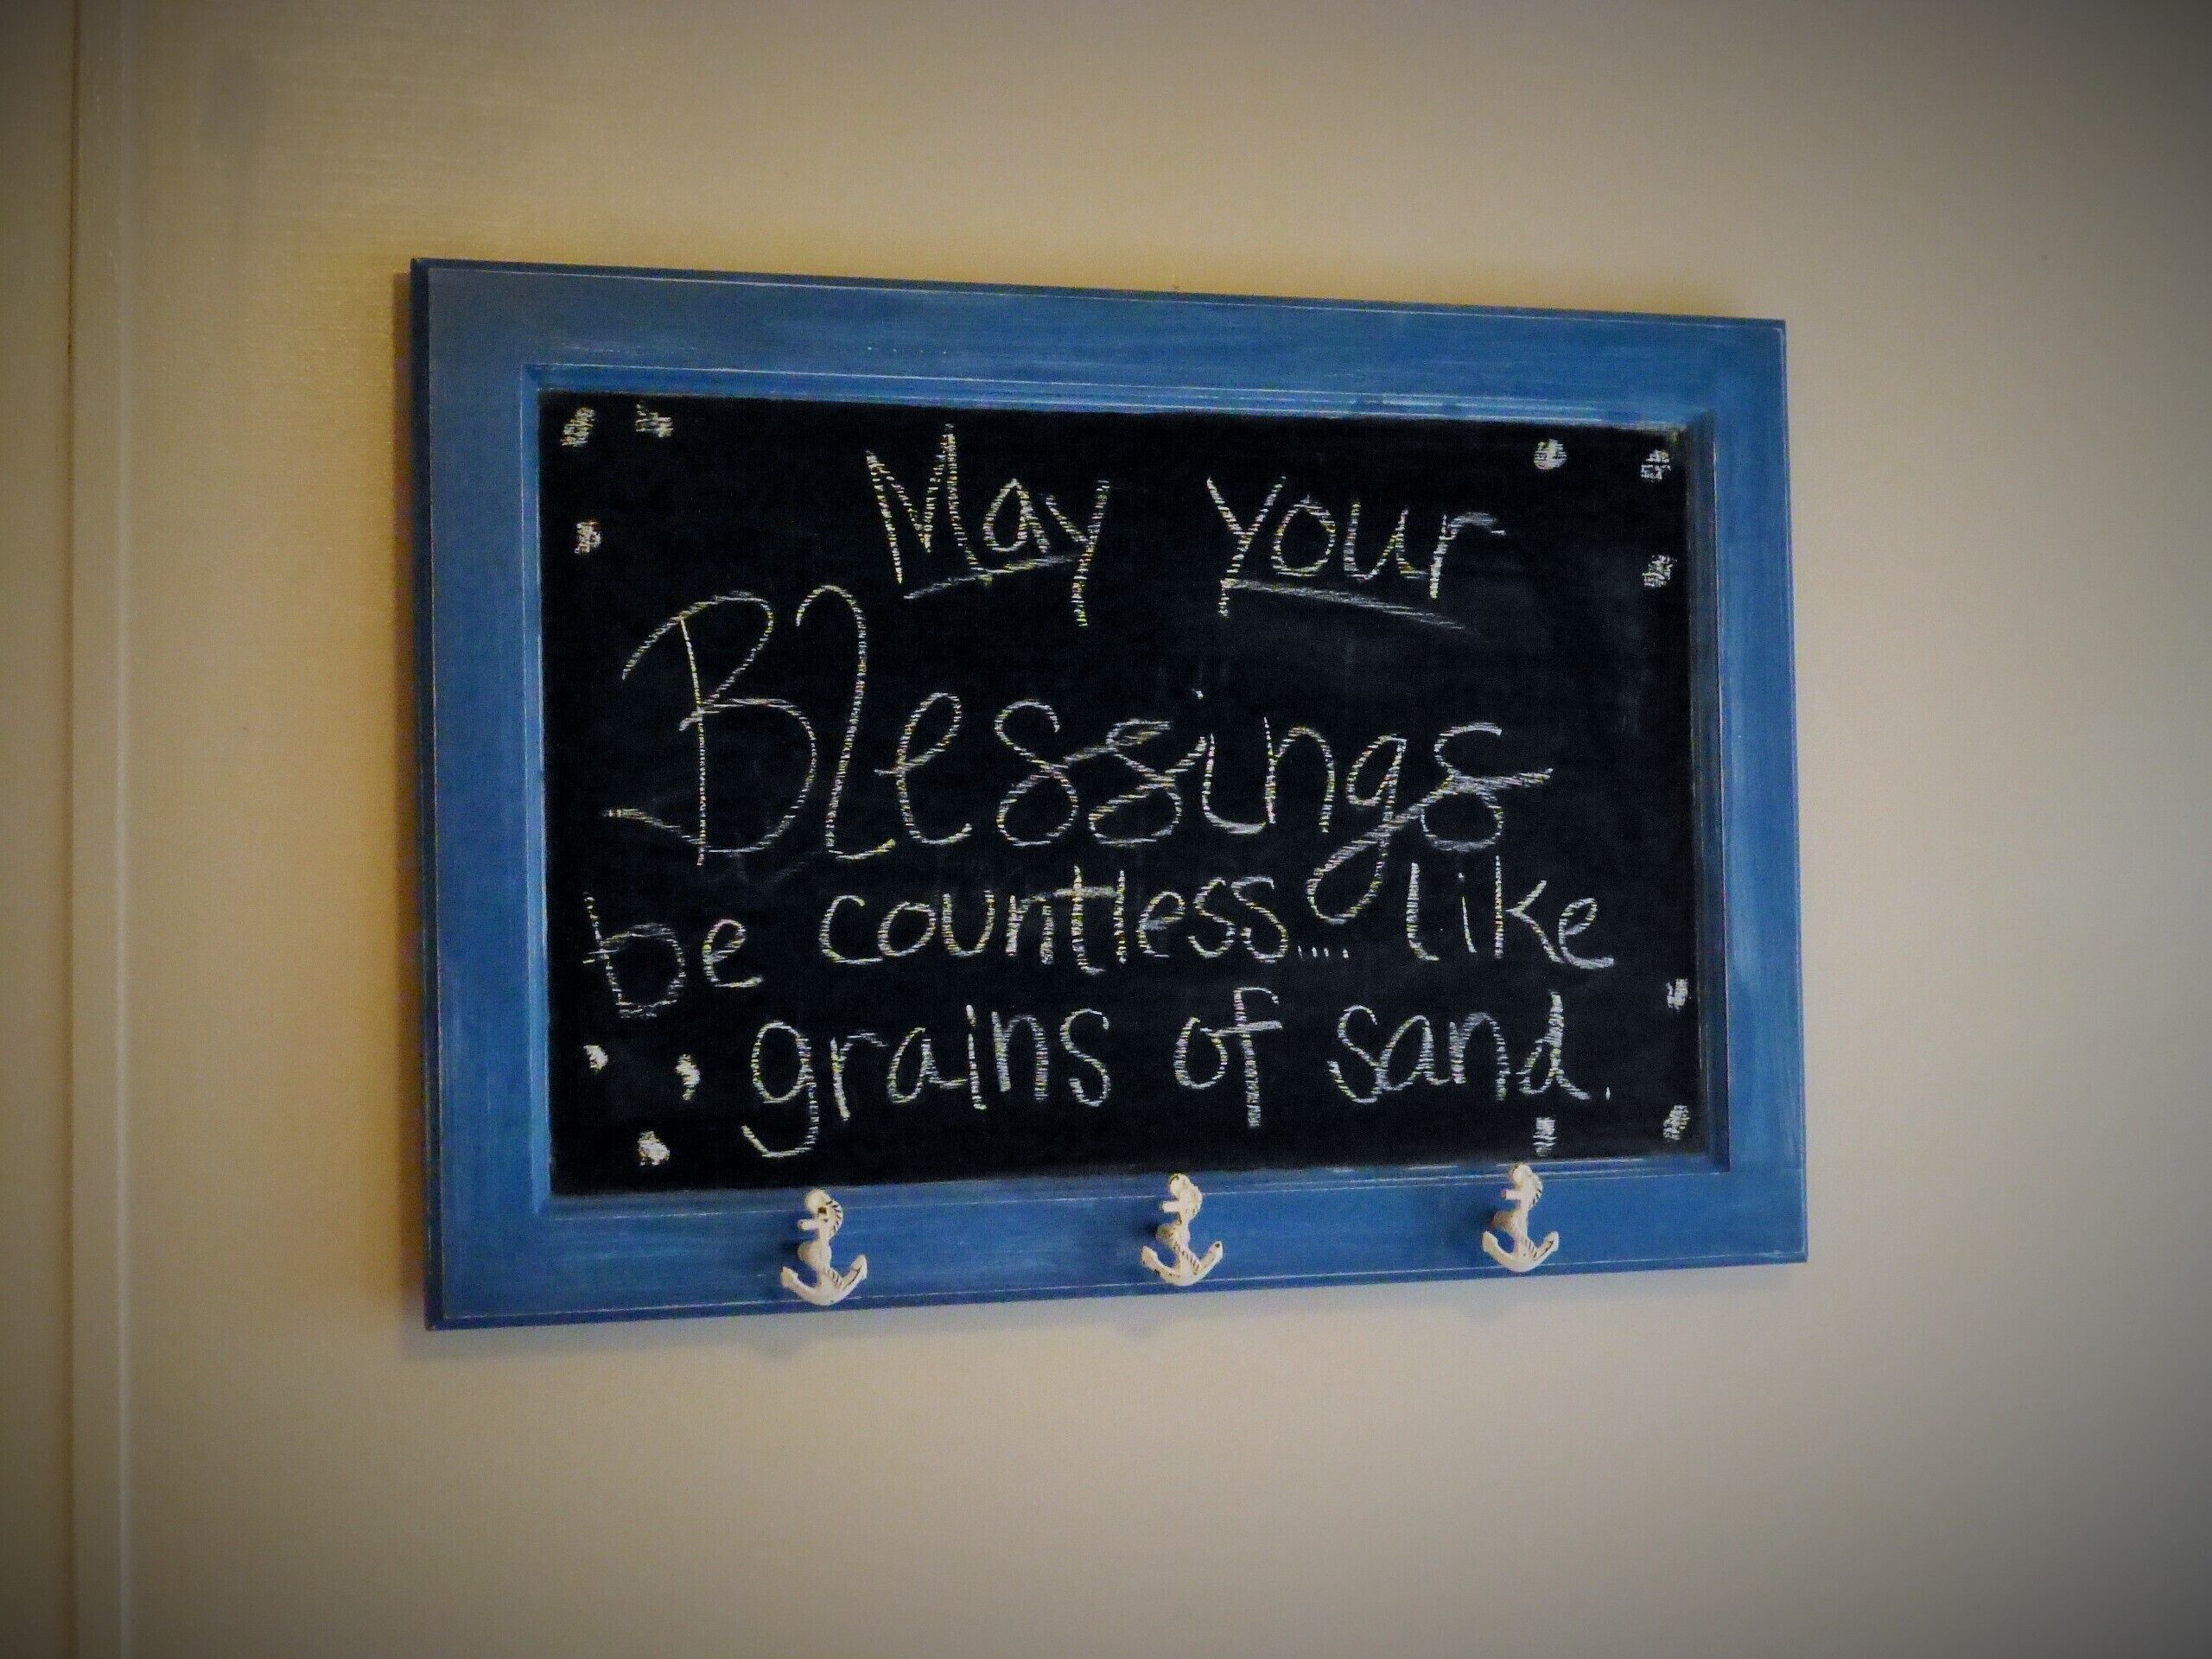 May your
Blessings
be countless.... like
grains of sand.